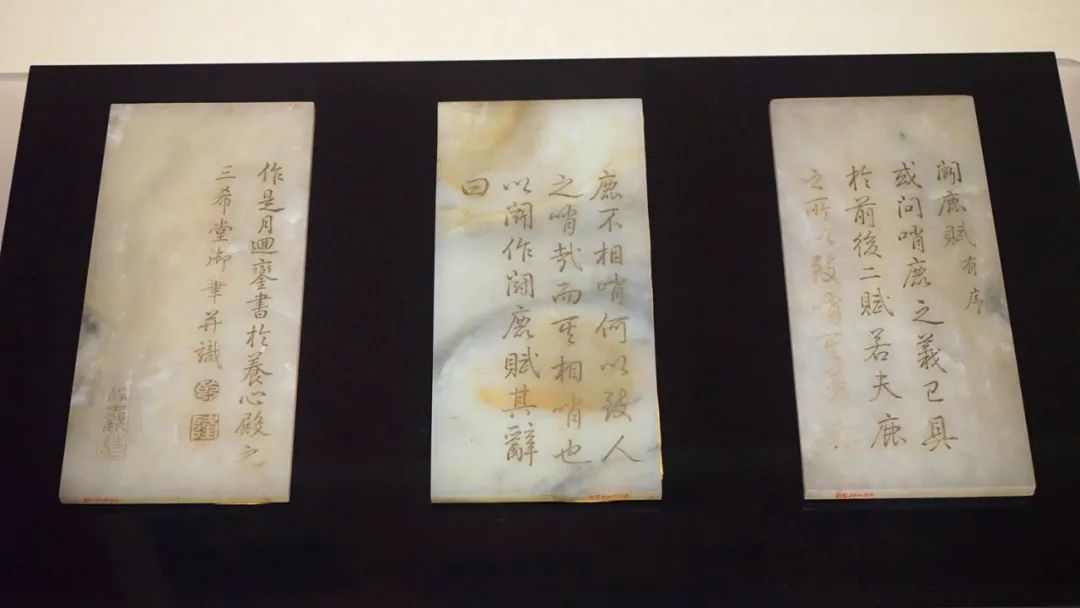 闘鹿賦有序
或问哨鹿之義已具
於前後二賦若夫鹿
之所以致哨
鹿不相哨何以致人
之哨哉而其相哨也
以闘作闘鹿賦其辭
曰
作是月迴鑾書於養心殿之
三希堂御筆并識